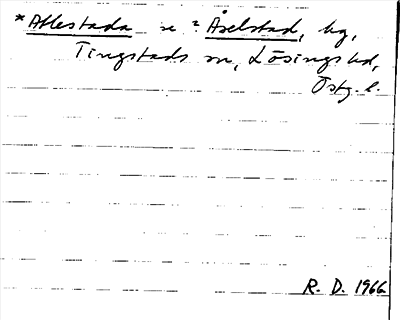 *Atlestada se ? Åselstad, by,
Tingstads sn, Lösings hd,
Östg. l.
R. D. 1966